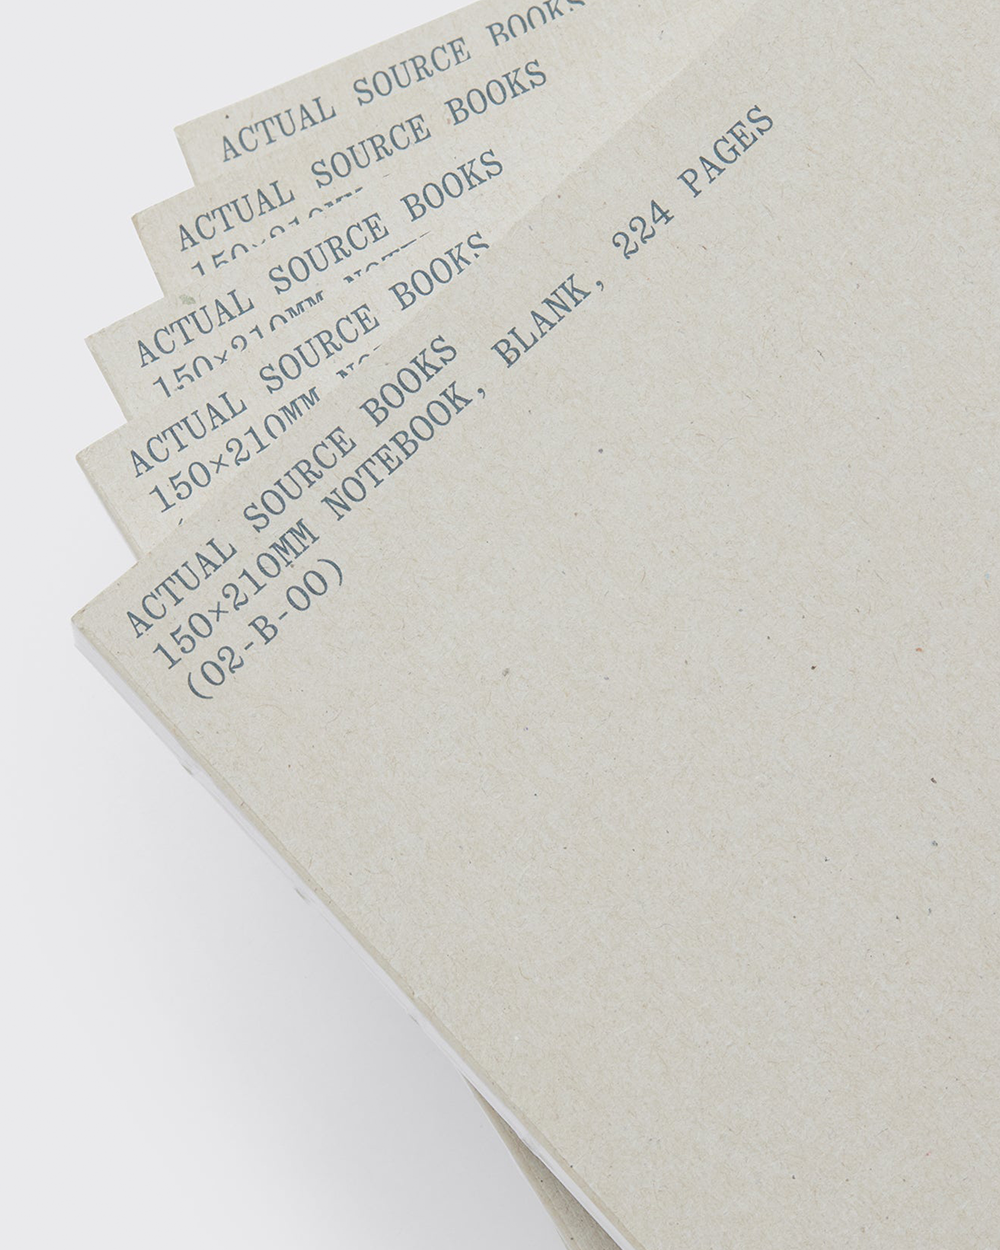 ACTUAL SOURCE BOOKS
ACTUAL SOURCE BOOKS
150×210MM
ACTUAL SOURCE BOOKS
150×210MM NOTE
ACTUAL SOURCE BOOKS
150×210MM NO
ACTUAL SOURCE BOOKS
150×210MM NOTEBOOK, BLANK, 224 PAGES
(02-B-00)